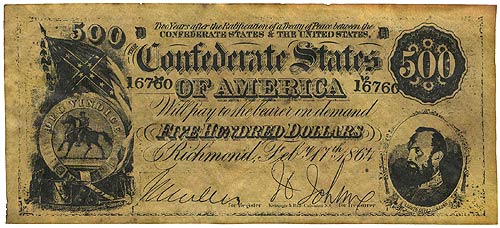 Two Years after the Ratification of a Treaty of Peace between the
CONFEDERATE STATES & THE UNITED STATES,
500 D D
Confederate States 500
16760 16760
OF AMERICA
DEO VINDICE
Will pay to the bearer on demand
FIVE HUNDRED DOLLARS
Richmond, Feby. 17th 1864
for Register for Treasurer